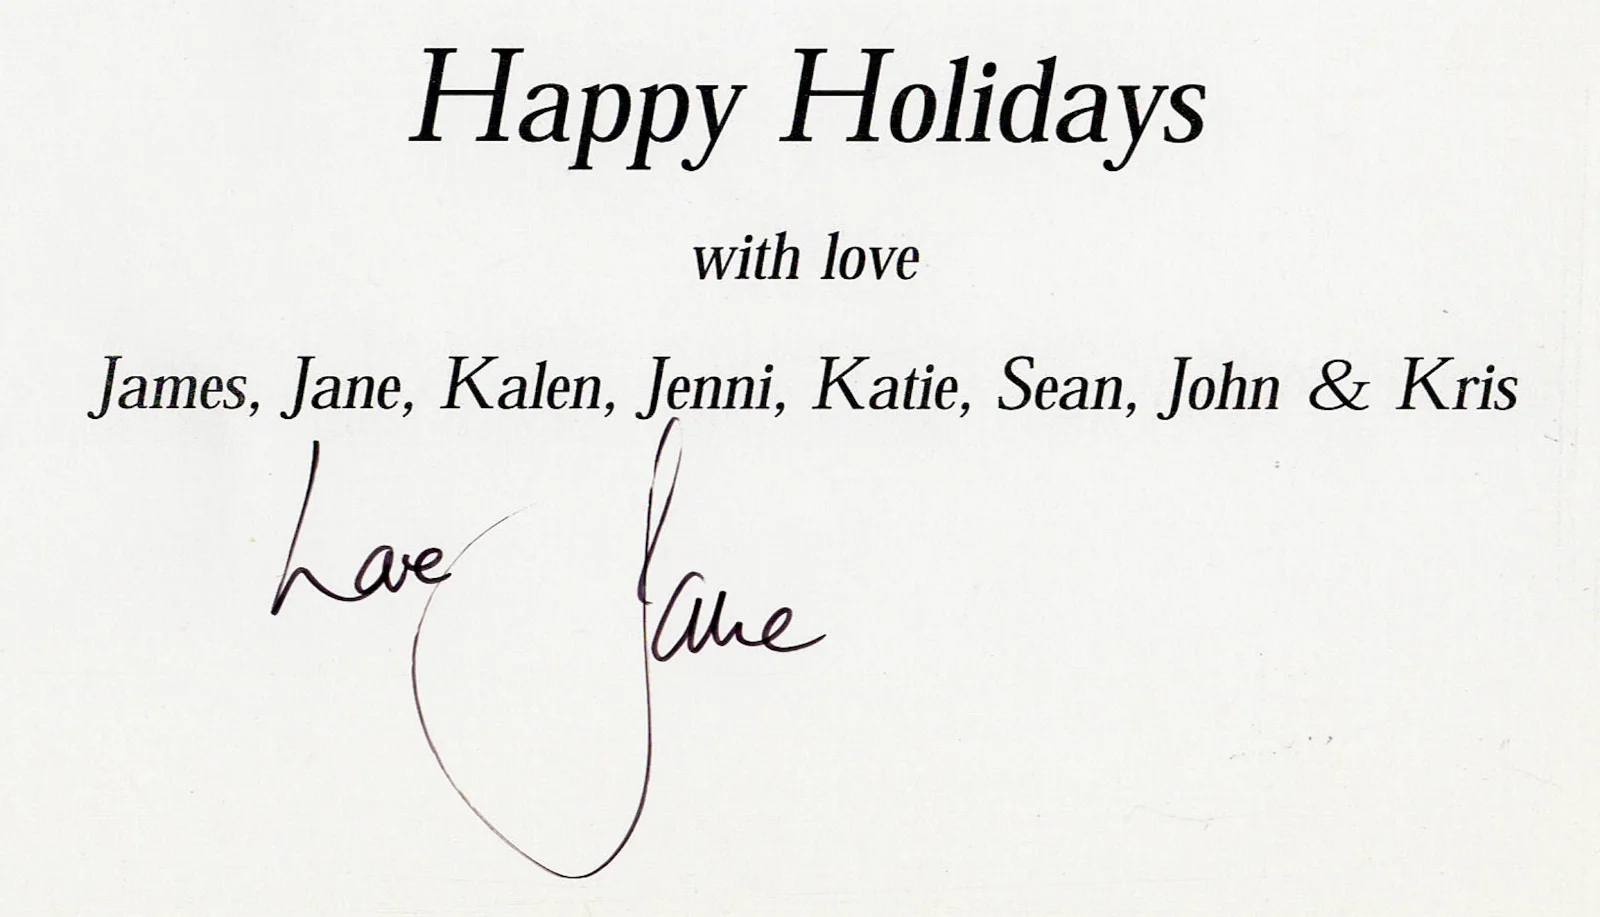 Happy Holidays
with love
James, Jane, Kalen, Jenni, Katie, Sean, John & Kris
Love
Jane